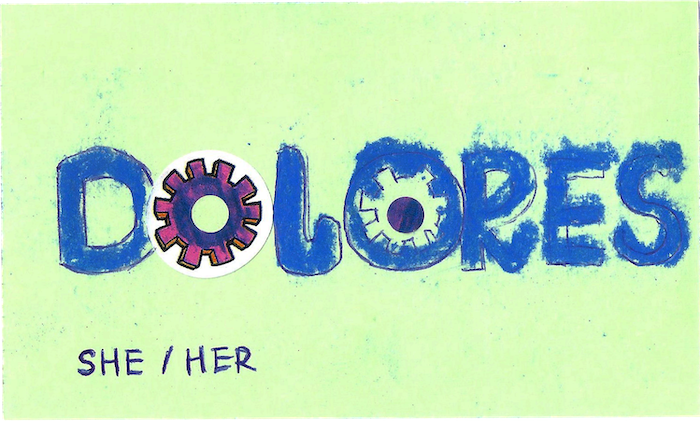 DOLORES
SHE / HER